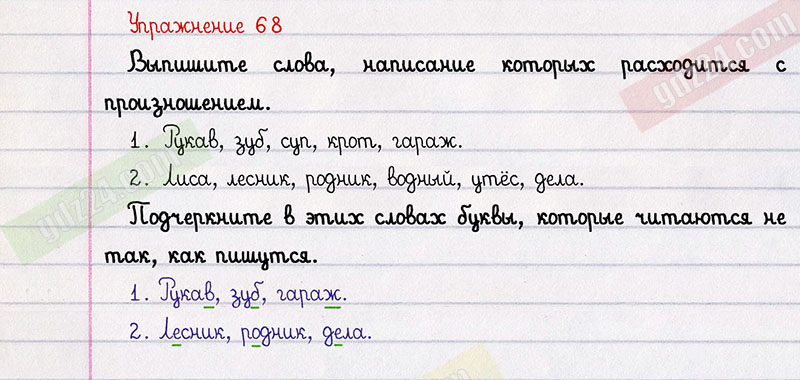 Упражнение 68
Выпишите слова, написание которых расходится с
произношением.
1. Рукав, зуб, суп, крот, гараж.
2. Лиса, лесник, родник, водный, утёс, дела.
Подчеркните в этих словах буквы, которые читаются не
так, как пишутся.
1. Рукав, зуб, гараж.
2. Лесник, родник, дела.
gdz24.com
gdz24.com